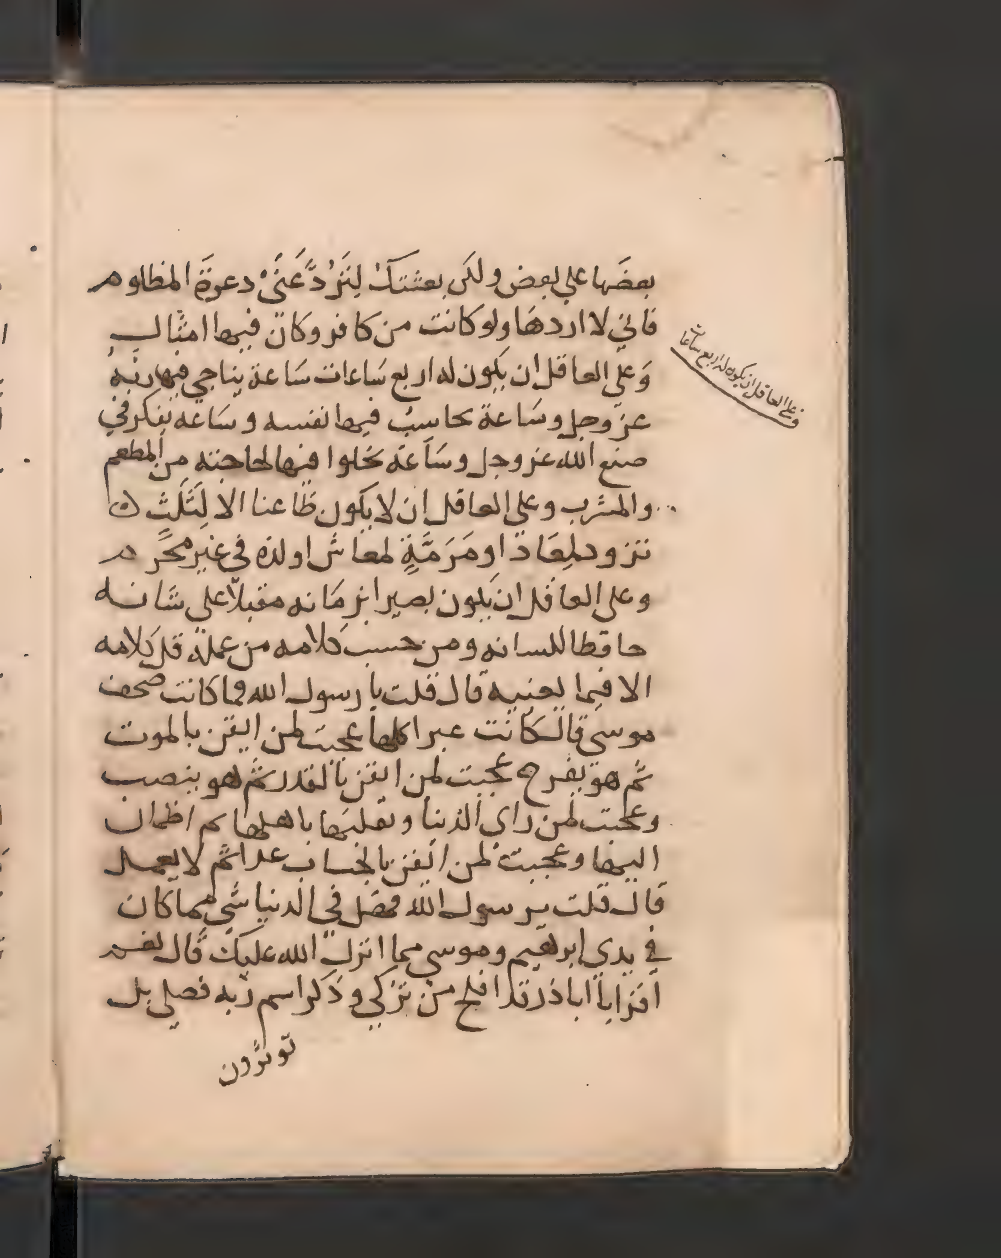 بعضَها على بعض ولكن بعثتكَ لِتَرُدَّ عَنّىْ دعوةَ المظلوم
فاني لا اردها ولو كانت من كافر وكان فيها امثال
وَعلى العاقل ان يكون له اربع سَاعات سَاعة يناجي فيها ربه
عز وجل وسَاعة يحاسب فيها نفسه وسَاعه يفكر في
صنع الله عز وجل وسَاعة يخلوا فيها لحاجته من المطعم
والمشرب وعلى العاقل ان لا يكون ظاعنا الا لثلثٍ
تزود لمعَاد او مَرَمَّةٍ لمعاش او لذه في غير محرم
وعلى العاقل ان يكون بصيرا بزمَانه مقبلا على شانه
حافظا للسانه ومن حسب كلامه من عمله قل كلامه
الا فيما يعنيه قال قلت يا رسول الله فما كانت صحف
موسى قال كانت عبرا كلها عجبت لمن ايقن بالموت
ثم هو يفرح عجبت لمن ايقن بالقدر ثم هو ينصب
وعجبت لمن راى الدنيا وتقلبها باهلها ثم اطمان
اليها وعجبت لمن ايقن بالحساب غدا ثم لا يعمل
قال قلت يرسول الله فهل في الدنيا شي مما كان
في يدي ابرهيم وموسى مما انزل الله عليك قال نعم
اقرا يا اباذر قد افلح من تزكي وذكر اسم ربه فصلي بل
توثرون
وعلى العاقل ان يكون له اربع ساعات